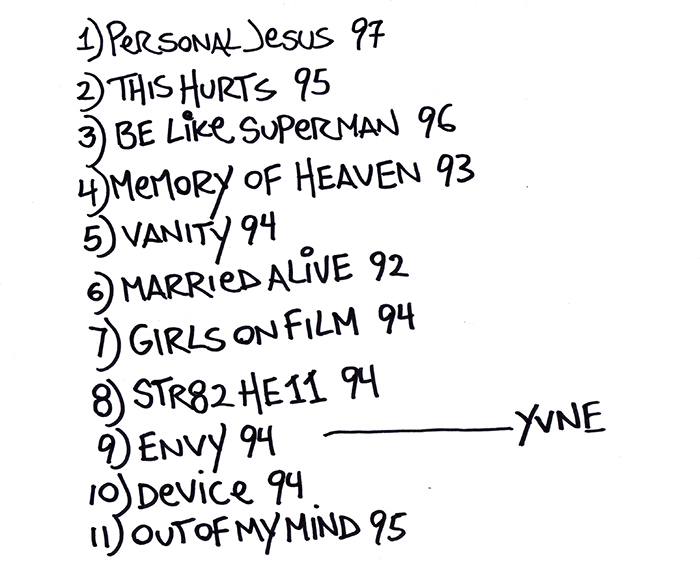 1) PERSONAL JESUS 97
2) THIS HURTS 95
3) BE LIKE SUPERMAN 96
4) MEMORY OF HEAVEN 93
5) VANITY 94
6) MARRIED ALIVE 92
7) GIRLS ON FILM 94
8) STR82HE11 94
9) ENVY 94 YVNE
10) DEVICE 94
11) OUT OF MY MIND 95